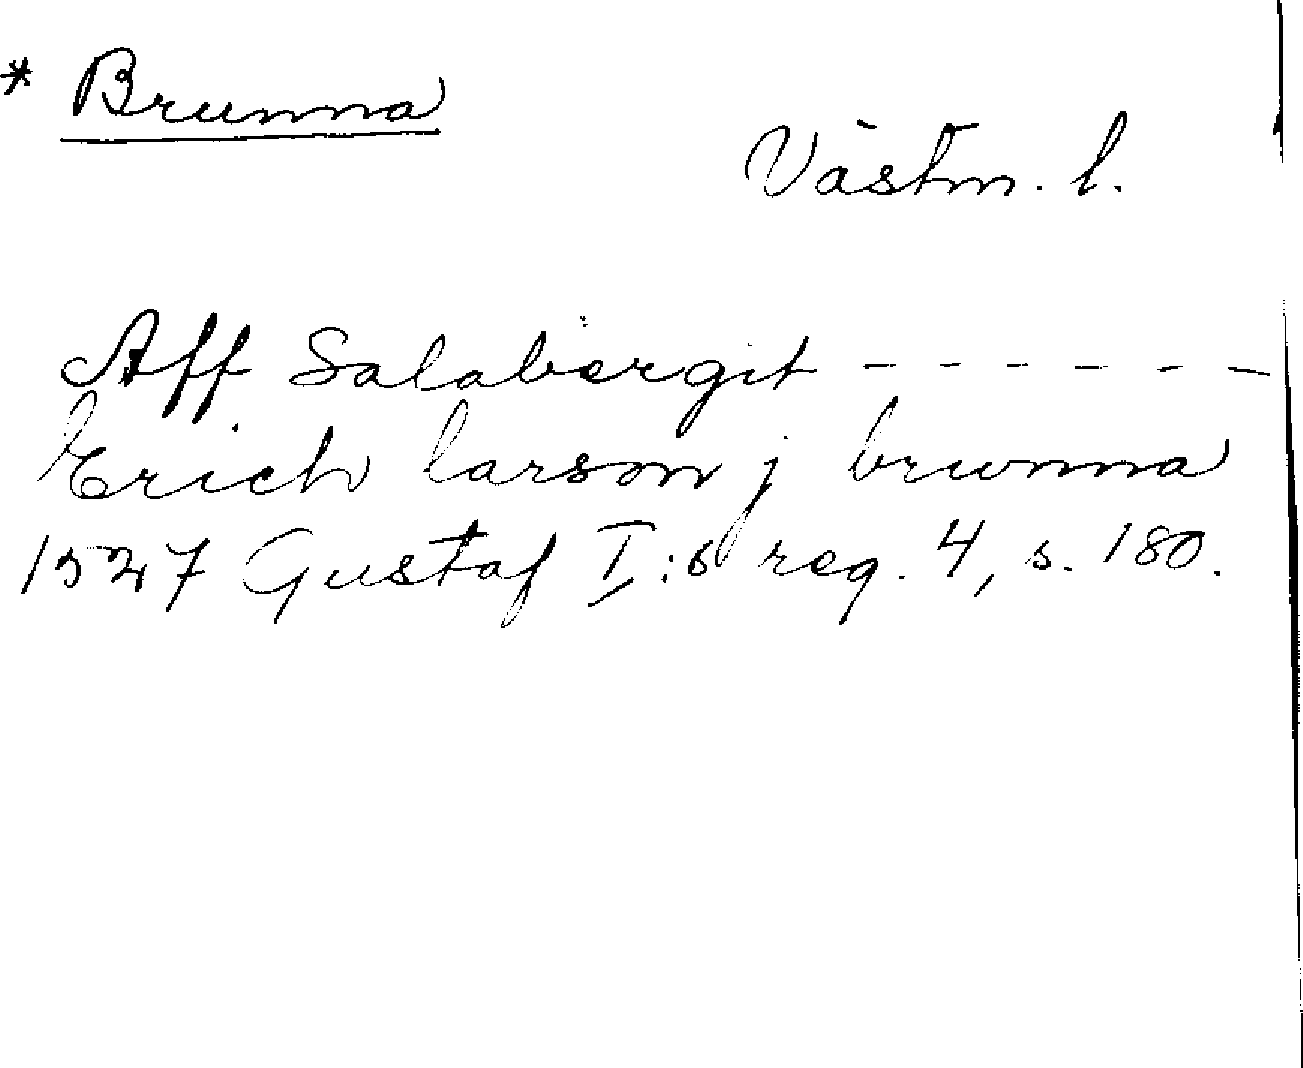 * Brunna
Västm. l.
Aff Salabergit - - - - - -
Erich larson j brunna
1527 Gustaf I:s reg. 4, s. 180.